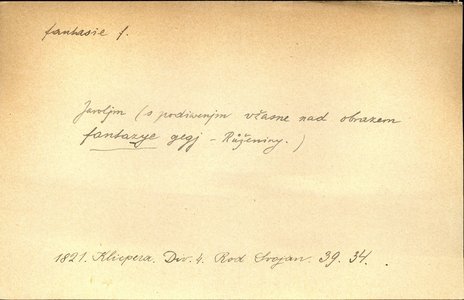 fantasie f.
Jaroljm (s podiwenjm včasne nad obrazem
fantazye gegj - Růženiny.)
1821. Klicpera. Div. 4. Rod Svojan. 39. 34.